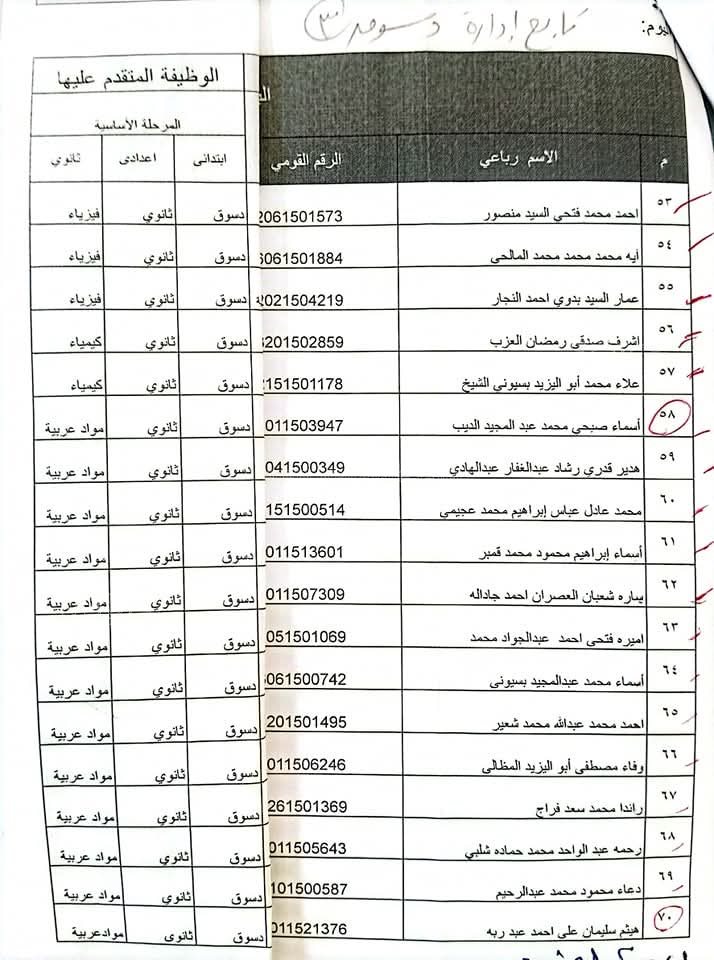 اليوم:
تابع إدارة دسوق (٣)
الوظيفة المتقدم عليها
المرحلة الأساسية
م الاسم رباعي الرقم القومي ابتدائى اعدادى ثانوي
٥٣ احمد محمد فتحي السيد منصور 2061501573 دسوق ثانوي فيزياء
٥٤ ايه محمد محمد محمد المالحى 6061501884 دسوق ثانوي فيزياء
٥٥ عمار السيد بدوي احمد النجار 2021504219 دسوق ثانوي فيزياء
٥٦ اشرف صدقى رمضان العزب 201502859 دسوق ثانوي كيمياء
٥٧ علاء محمد أبو اليزيد بسيوني الشيخ 151501178 دسوق ثانوي كيمياء
٥٨ أسماء صبحي محمد عبد المجيد الديب 011503947 دسوق ثانوي مواد عربية
٥٩ هدير قدري رشاد عبدالغفار عبدالهادي 041500349 دسوق ثانوي مواد عربية
٦٠ محمد عادل عباس إبراهيم محمد عجيمي 151500514 دسوق ثانوي مواد عربية
٦١ أسماء إبراهيم محمود محمد قمبر 011513601 دسوق ثانوي مواد عربية
٦٢ يساره شعبان العصران احمد جادالله 011507309 دسوق ثانوي مواد عربية
٦٣ اميره فتحى احمد عبدالجواد محمد 051501069 دسوق ثانوي مواد عربية
٦٤ أسماء محمد عبدالمجيد بسيونى 061500742 دسوق ثانوي مواد عربية
٦٥ احمد محمد عبدالله محمد شعير 201501495 دسوق ثانوي مواد عربية
٦٦ وفاء مصطفى أبو اليزيد المظالى 011506246 دسوق ثانوي مواد عربية
٦٧ راندا محمد سعد فراج 261501369 دسوق ثانوي مواد عربية
٦٨ رحمه عبد الواحد محمد حماده شلبي 011505643 دسوق ثانوي مواد عربية
٦٩ دعاء محمود محمد عبدالرحيم 101500587 دسوق ثانوي مواد عربية
٧٠ هيثم سليمان على احمد عبد ربه 011521376 دسوق ثانوى موادعربية